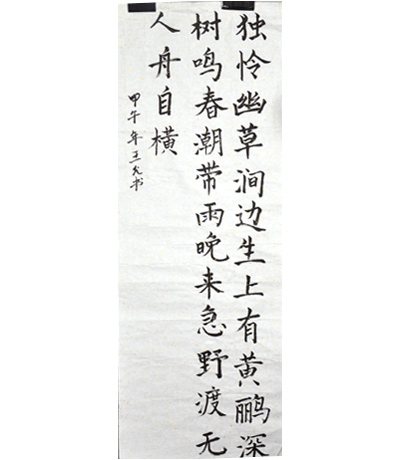 独怜幽草涧边生上有黄鹂深
树鸣春潮带雨晚来急野渡无
人舟自横
甲午年王书